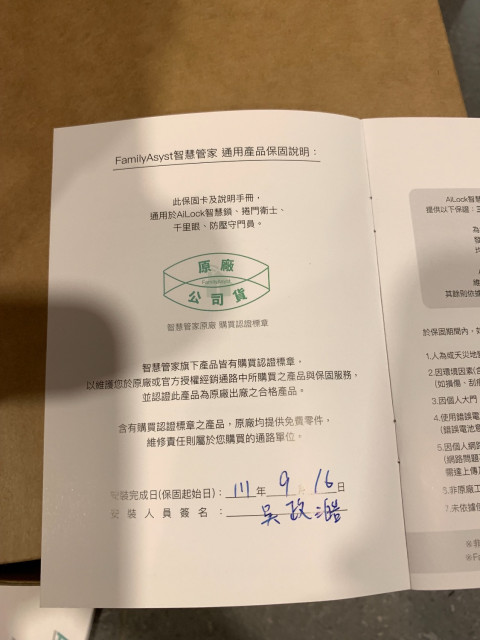 FamilyAsyst智慧管家 通用產品保固說明：
此保固卡及說明手冊，
通用於AiLock智慧鎖、捲門衛士、
千里眼、防壓守門員。
原廠
FamilyAsyst
公司貨
智慧管家原廠 購買認證標章
智慧管家旗下產品皆有購買認證標章，
以維護您於原廠或官方授權經銷通路中所購買之產品與保固服務，
並認證此產品為原廠出廠之合格產品。
含有購買認證標章之產品，原廠均提供免費零件，
維修責任則屬於您購買的通路單位。
安裝完成日(保固起始日)：111年 9 月 16日
安裝人員簽名：吳政澔
AiLock智慧
提供以下保證：三
為
發
均
維
其餘則依據
於保固期間內，如
1.人為或天災地
2.因環境因素(含
(如損傷、刮
3.因個人大門
4.使用錯誤電
(錯誤電池意
5.因個人網
(網路問題
需達上傳
6.非原廠工
7.未依據
※非
※Fa